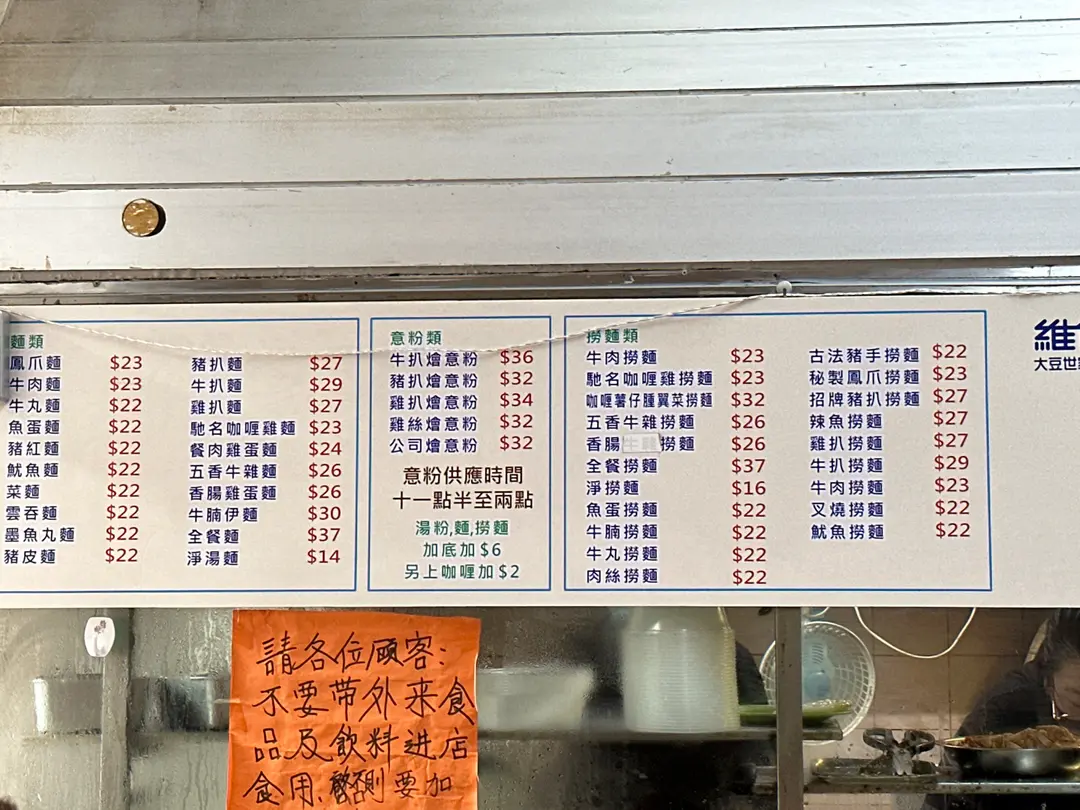 麵類
鳳爪麵 $23
牛肉麵 $23
牛丸麵 $22
魚蛋麵 $22
豬紅麵 $22
魷魚麵 $22
菜麵 $22
雲吞麵 $22
墨魚丸麵 $22
豬皮麵 $22
豬扒麵 $27
牛扒麵 $29
雞扒麵 $27
馳名咖喱雞麵 $23
餐肉雞蛋麵 $24
五香牛雜麵 $26
香腸雞蛋麵 $26
牛腩伊麵 $30
全餐麵 $37
淨湯麵 $14
意粉類
牛扒燴意粉 $36
豬扒燴意粉 $32
雞扒燴意粉 $34
雞絲燴意粉 $32
公司燴意粉 $32
意粉供應時間
十一點半至兩點
湯粉,麵,撈麵
加底加$6
另上咖喱加$2
撈麵類
牛肉撈麵 $23
馳名咖喱雞撈麵 $23
咖喱薯仔腫翼菜撈麵 $32
五香牛雜撈麵 $26
香腸撈麵 $26
全餐撈麵 $37
淨撈麵 $16
魚蛋撈麵 $22
牛腩撈麵 $22
牛丸撈麵 $22
肉絲撈麵 $22
古法豬手撈麵 $22
秘製鳳爪撈麵 $23
招牌豬扒撈麵 $27
辣魚撈麵 $27
雞扒撈麵 $27
牛扒撈麵 $29
牛肉撈麵 $23
叉燒撈麵 $22
魷魚撈麵 $22
維
大豆世
請各位顧客:
不要帶外来食
品及飲料进店
食用,則要加